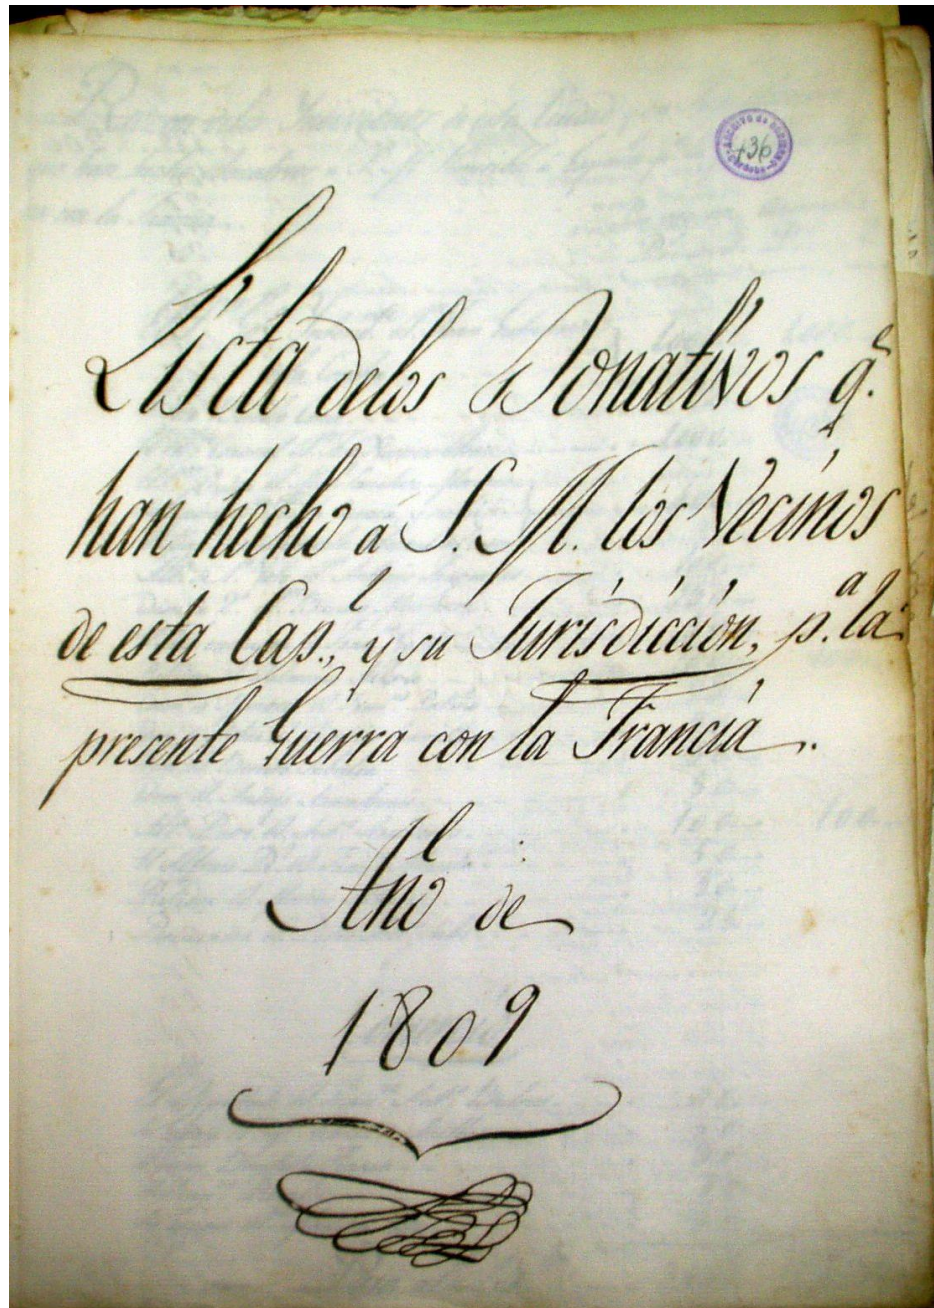 436
Lista delos Donativos q.e
han hecho á S. M. los Vecinos
de esta Cap.l, y su Jurisdiccion, p.a la
presente Guerra con la Francia..
Año de
1809